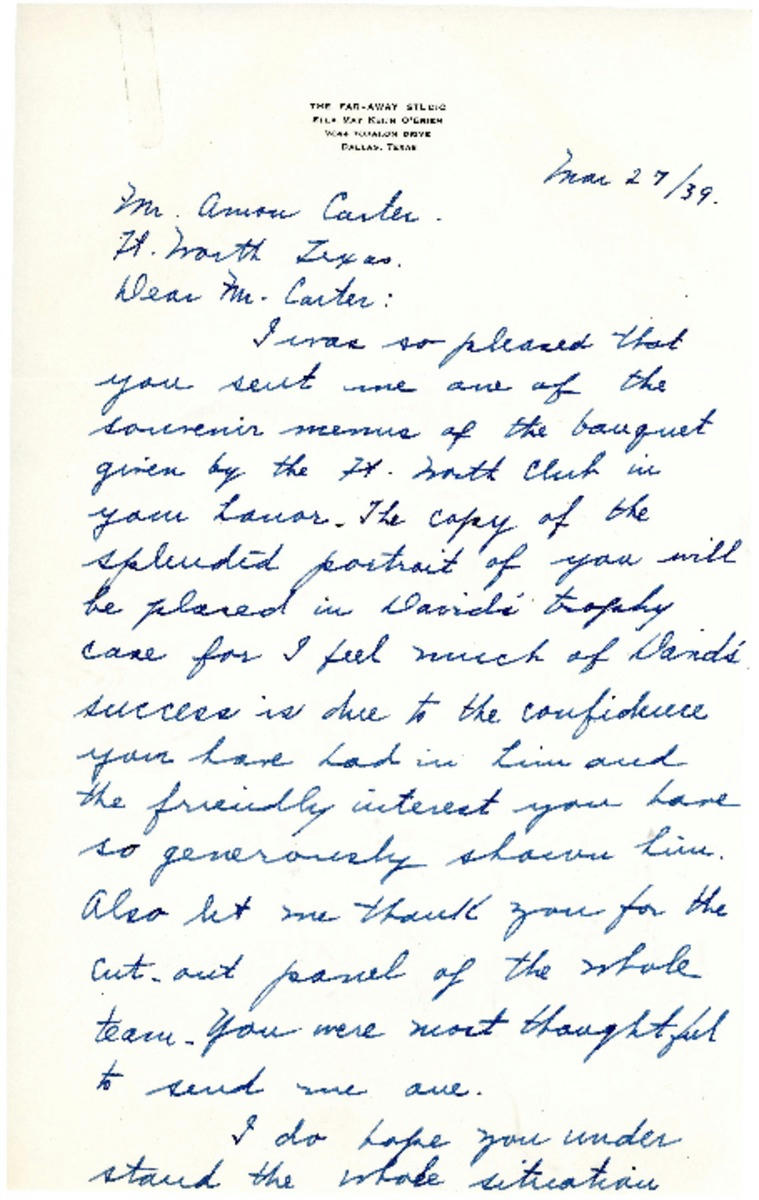 THE FAR-AWAY STUDIO
ELLA MAY KEITH O'BRIEN
DRIVE
DALLAS, TEXAS
Mar 27/39.
Mr. Amon Carter.
Ft. Worth Texas.
Dear Mr. Carter:
I was so pleased that
you sent me one of the
souvenir menus of the banquet
given by the Ft. Worth Club in
your honor. The copy of the
splendid portrait of you will
be placed in David's trophy
case for I feel much of David's
success is due to the confidence
you have had in him and
the friendly interest you have
so generously shown him.
Also let me thank you for the
cut-out panel of the whole
team. You were most thoughtful
to send me one.
I do hope you under
stand the whole situation